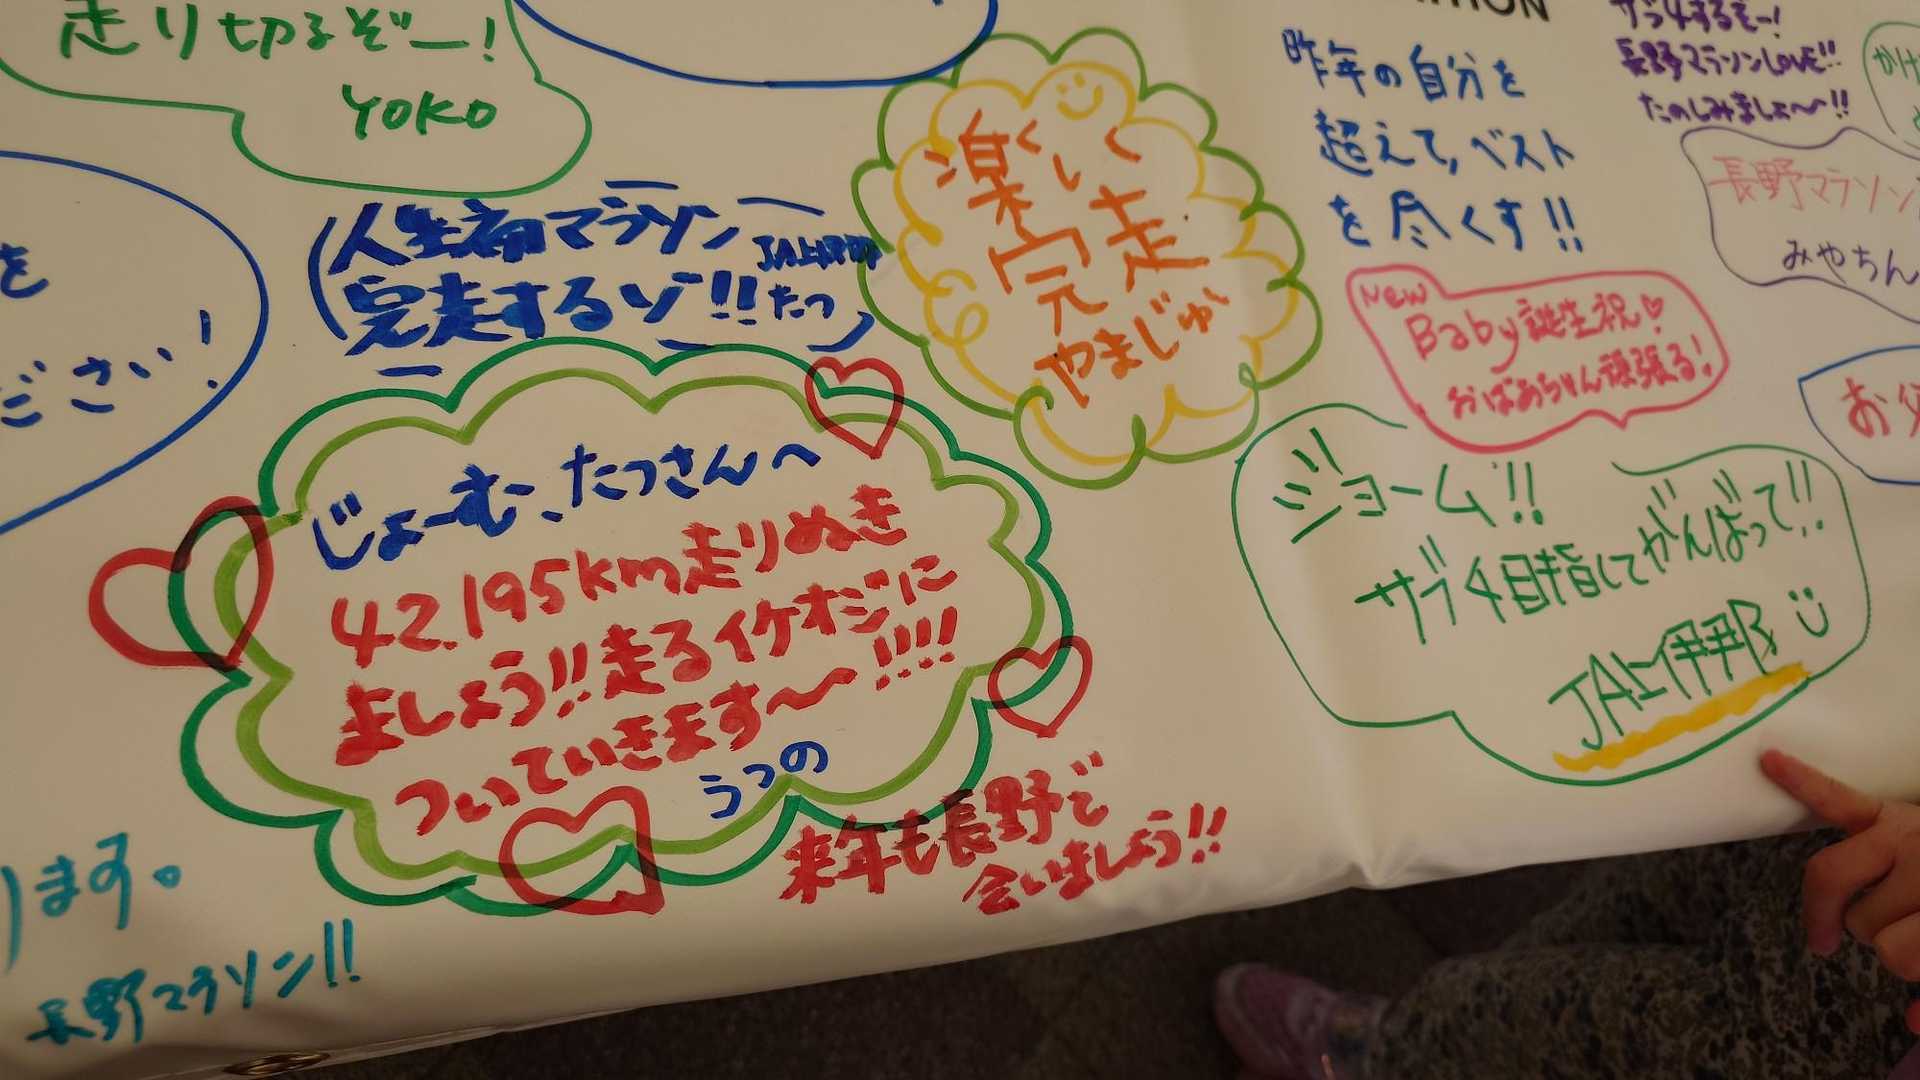 走り切るぞー!
YOKO
を
ださい!
人生初マラソン
完走するゾ!!
JA上伊那
たつ
楽しく
完走
やまじゅん
昨年の自分を
超えて,ベスト
を尽くす!!
サブ4するぞー!
長野マラソンLOVE!!
たのしみましょ〜!!
長野マラソン
みやちん
New
Baby誕生祝♡
おばあちゃん頑張る!
お父
じょーむ、たっさんへ
42.195km走りぬき
ましょう!!走るイケオジに
ついていきます〜!!!!
うつの
来年も長野で
会いましょう!!
ジョーム!!
サブ4目指してがんばって!!
JA上伊那
ります。
長野マラソン!!